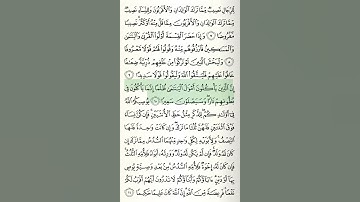 لِّلرِّجَالِ نَصِيبٌ مِّمَّا تَرَكَ ٱلْوَٰلِدَانِ وَٱلْأَقْرَبُونَ وَلِلنِّسَآءِ نَصِيبٌ
مِّمَّا تَرَكَ ٱلْوَٰلِدَانِ وَٱلْأَقْرَبُونَ مِمَّا قَلَّ مِنْهُ أَوْ كَثُرَ نَصِيبًا
مَّفْرُوضًا ٧ وَإِذَا حَضَرَ ٱلْقِسْمَةَ أُو۟لُوا۟ ٱلْقُرْبَىٰ وَٱلْيَتَٰمَىٰ
وَٱلْمَسَٰكِينُ فَٱرْزُقُوهُم مِّنْهُ وَقُولُوا۟ لَهُمْ قَوْلًا مَّعْرُوفًا
٨ وَلْيَخْشَ ٱلَّذِينَ لَوْ تَرَكُوا۟ مِنْ خَلْفِهِمْ ذُرِّيَّةً ضِعَٰفًا
خَافُوا۟ عَلَيْهِمْ فَلْيَتَّقُوا۟ ٱللَّهَ وَلْيَقُولُوا۟ قَوْلًا سَدِيدًا ٩
إِنَّ ٱلَّذِينَ يَأْكُلُونَ أَمْوَٰلَ ٱلْيَتَٰمَىٰ ظُلْمًا إِنَّمَا يَأْكُلُونَ فِى
بُطُونِهِمْ نَارًا وَسَيَصْلَوْنَ سَعِيرًا ١٠ يُوصِيكُمُ ٱللَّهُ
فِىٓ أَوْلَٰدِكُمْ لِلذَّكَرِ مِثْلُ حَظِّ ٱلْأُنثَيَيْنِ فَإِن كُنَّ نِسَآءً
فَوْقَ ٱثْنَتَيْنِ فَلَهُنَّ ثُلُثَا مَا تَرَكَ وَإِن كَانَتْ وَٰحِدَةً فَلَهَا
ٱلنِّصْفُ وَلِأَبَوَيْهِ لِكُلِّ وَٰحِدٍ مِّنْهُمَا ٱلسُّدُسُ مِمَّا تَرَكَ إِن
كَانَ لَهُۥ وَلَدٌ فَإِن لَّمْ يَكُن لَّهُۥ وَلَدٌ وَوَرِثَهُۥٓ أَبَوَاهُ فَلِأُمِّهِ ٱلثُّلُثُ
فَإِن كَانَ لَهُۥٓ إِخْوَةٌ فَلِأُمِّهِ ٱلسُّدُسُ مِنۢ بَعْدِ وَصِيَّةٍ
يُوصِى بِهَآ أَوْ دَيْنٍ ءَابَآؤُكُمْ وَأَبْنَآؤُكُمْ لَا تَدْرُونَ أَيُّهُمْ أَقْرَبُ لَكُمْ
نَفْعًا فَرِيضَةً مِّنَ ٱللَّهِ إِنَّ ٱللَّهَ كَانَ عَلِيمًا حَكِيمًا ١١